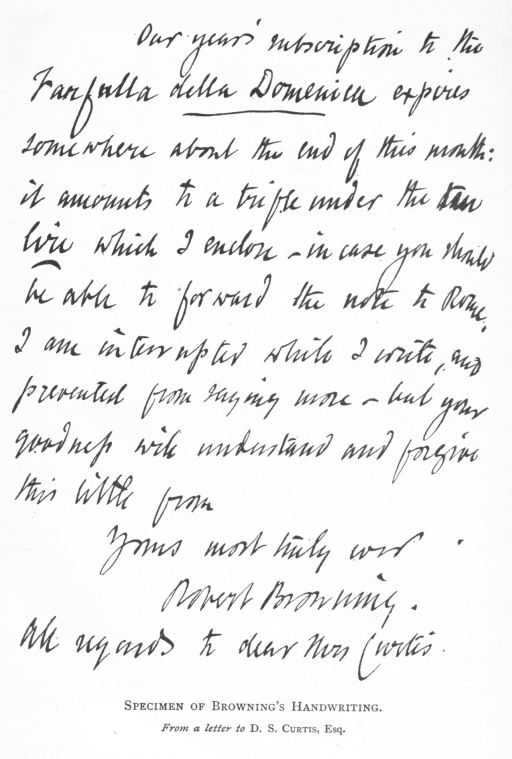 Our year's subscription to the
Fanfulla della Domenica expires
somewhere about the end of this month:
it amounts to a trifle under the ten
lire which I enclose – in case you should
be able to forward the note to Rome.
I am interrupted while I write, and
prevented from saying more – but your
goodness will understand and forgive
this little from
Yours most truly ever
Robert Browning.
All regards to dear Mrs Curtis.
SPECIMEN OF BROWNING'S HANDWRITING.
From a letter to D. S. CURTIS, ESQ.